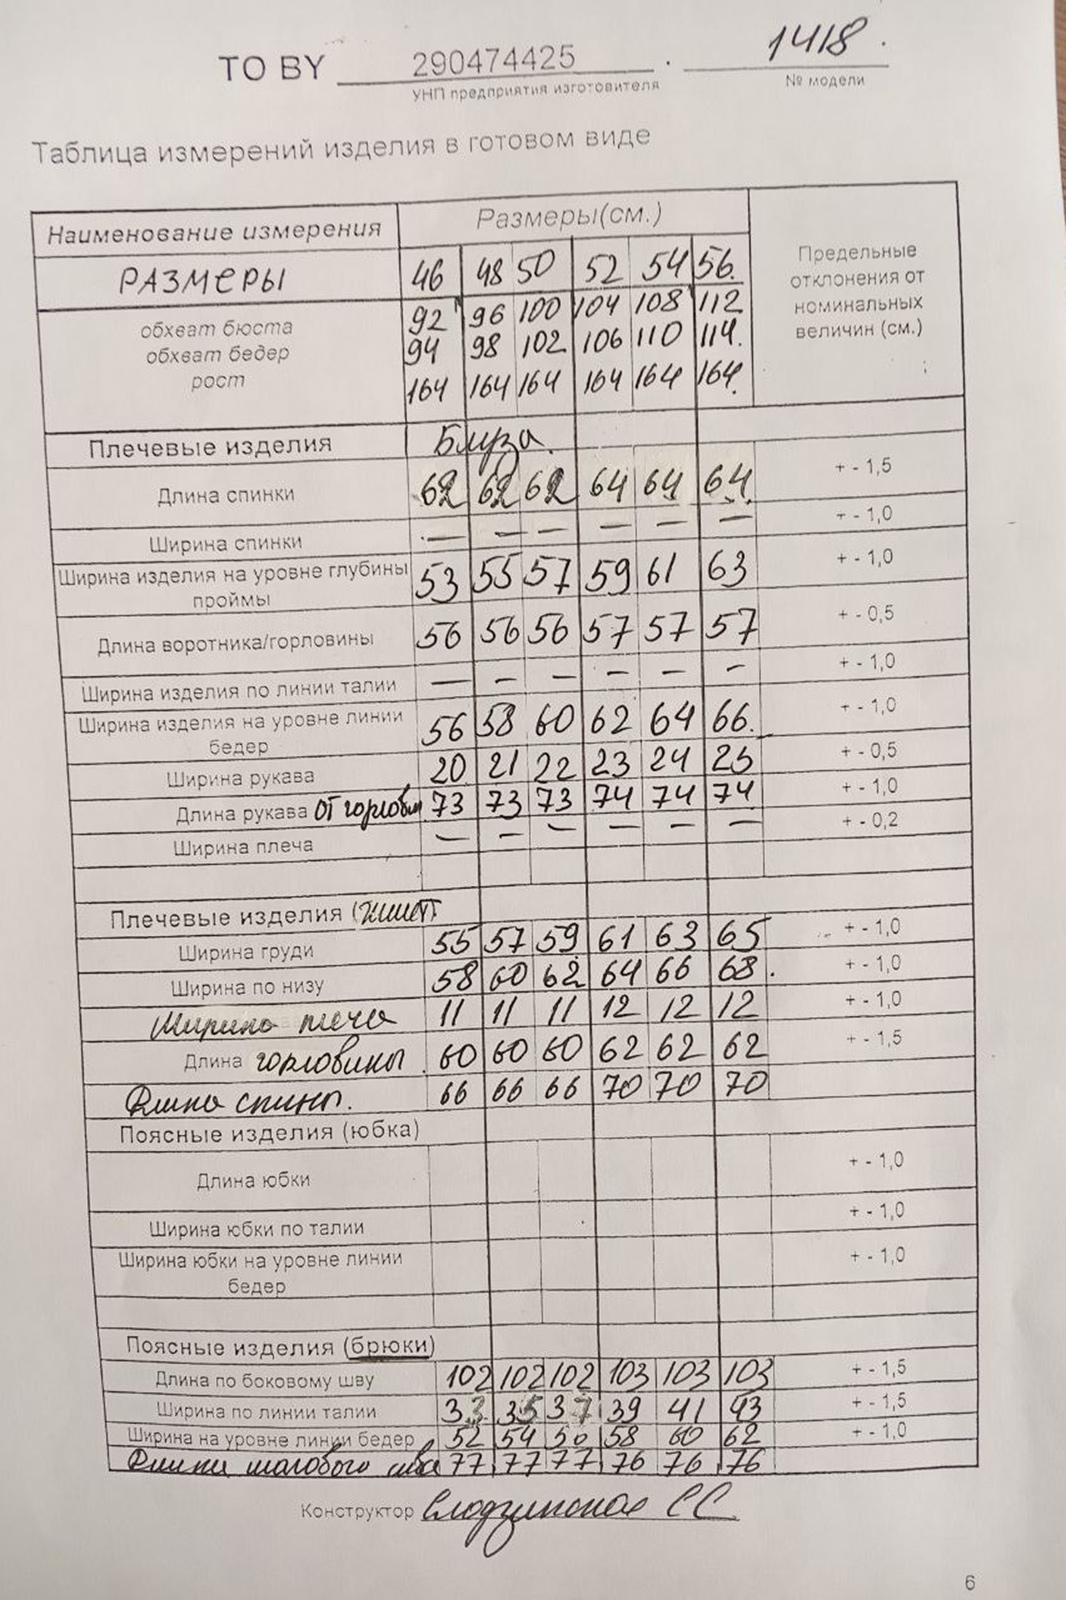 1418.
ТО BY 290474425 .
УНП предприятия изготовителя № модели
Таблица измерений изделия в готовом виде
Наименование измерения Размеры(см.) Предельные отклонения от номинальных величин (см.)
РАЗМЕРЫ 46 48 50 52 54 56.
обхват бюста 92 96 100 104 108 112
обхват бедер 94 98 102 106 110 114.
рост 164 164 164 164 164 164.
Плечевые изделия Блуза.
Длина спинки 62 62 62 64 64 64 + - 1,5
Ширина спинки — — — — — — + - 1,0
Ширина изделия на уровне глубины 53 55 57 59 61 63 + - 1,0
проймы
Длина воротника/горловины 56 56 56 57 57 57 + - 0,5
Ширина изделия по линии талии — — — — — — + - 1,0
Ширина изделия на уровне линии 56 58 60 62 64 66. + - 1,0
бедер
Ширина рукава 20 21 22 23 24 25 + - 0,5
Длина рукава от горлов 73 73 73 74 74 74 + - 1,0
Ширина плеча — — — — — — + - 0,2
Плечевые изделия (жилет)
Ширина груди 55 57 59 61 63 65 + - 1,0
Ширина по низу 58 60 62 64 66 68. + - 1,0
Ширина плеча 11 11 11 12 12 12 + - 1,0
Длина горловины 60 60 60 62 62 62 + - 1,5
Длина спины. 66 66 66 70 70 70
Поясные изделия (юбка)
Длина юбки + - 1,0
Ширина юбки по талии + - 1,0
Ширина юбки на уровне линии + - 1,0
бедер
Поясные изделия (брюки)
Длина по боковому шву 102 102 102 103 103 103 + - 1,5
Ширина по линии талии 33 35 37 39 41 43 + - 1,5
Ширина на уровне линии бедер 52 54 56 58 60 62 + - 1,0
Длина шагового шва 77 77 77 76 76 76
Конструктор С С
6